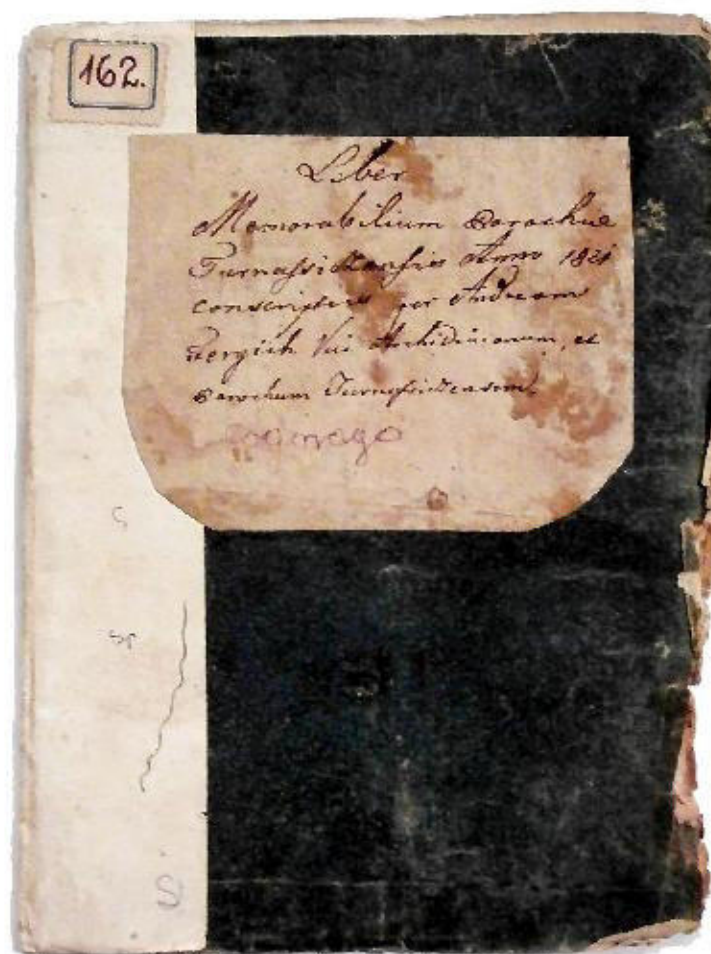 162.
Liber
Memorabilium Parochiae
Turnassicensis Anno 1821
conscriptus per Andream
Vui Archidiaconum, et
Parochum Turnassicensem.
S